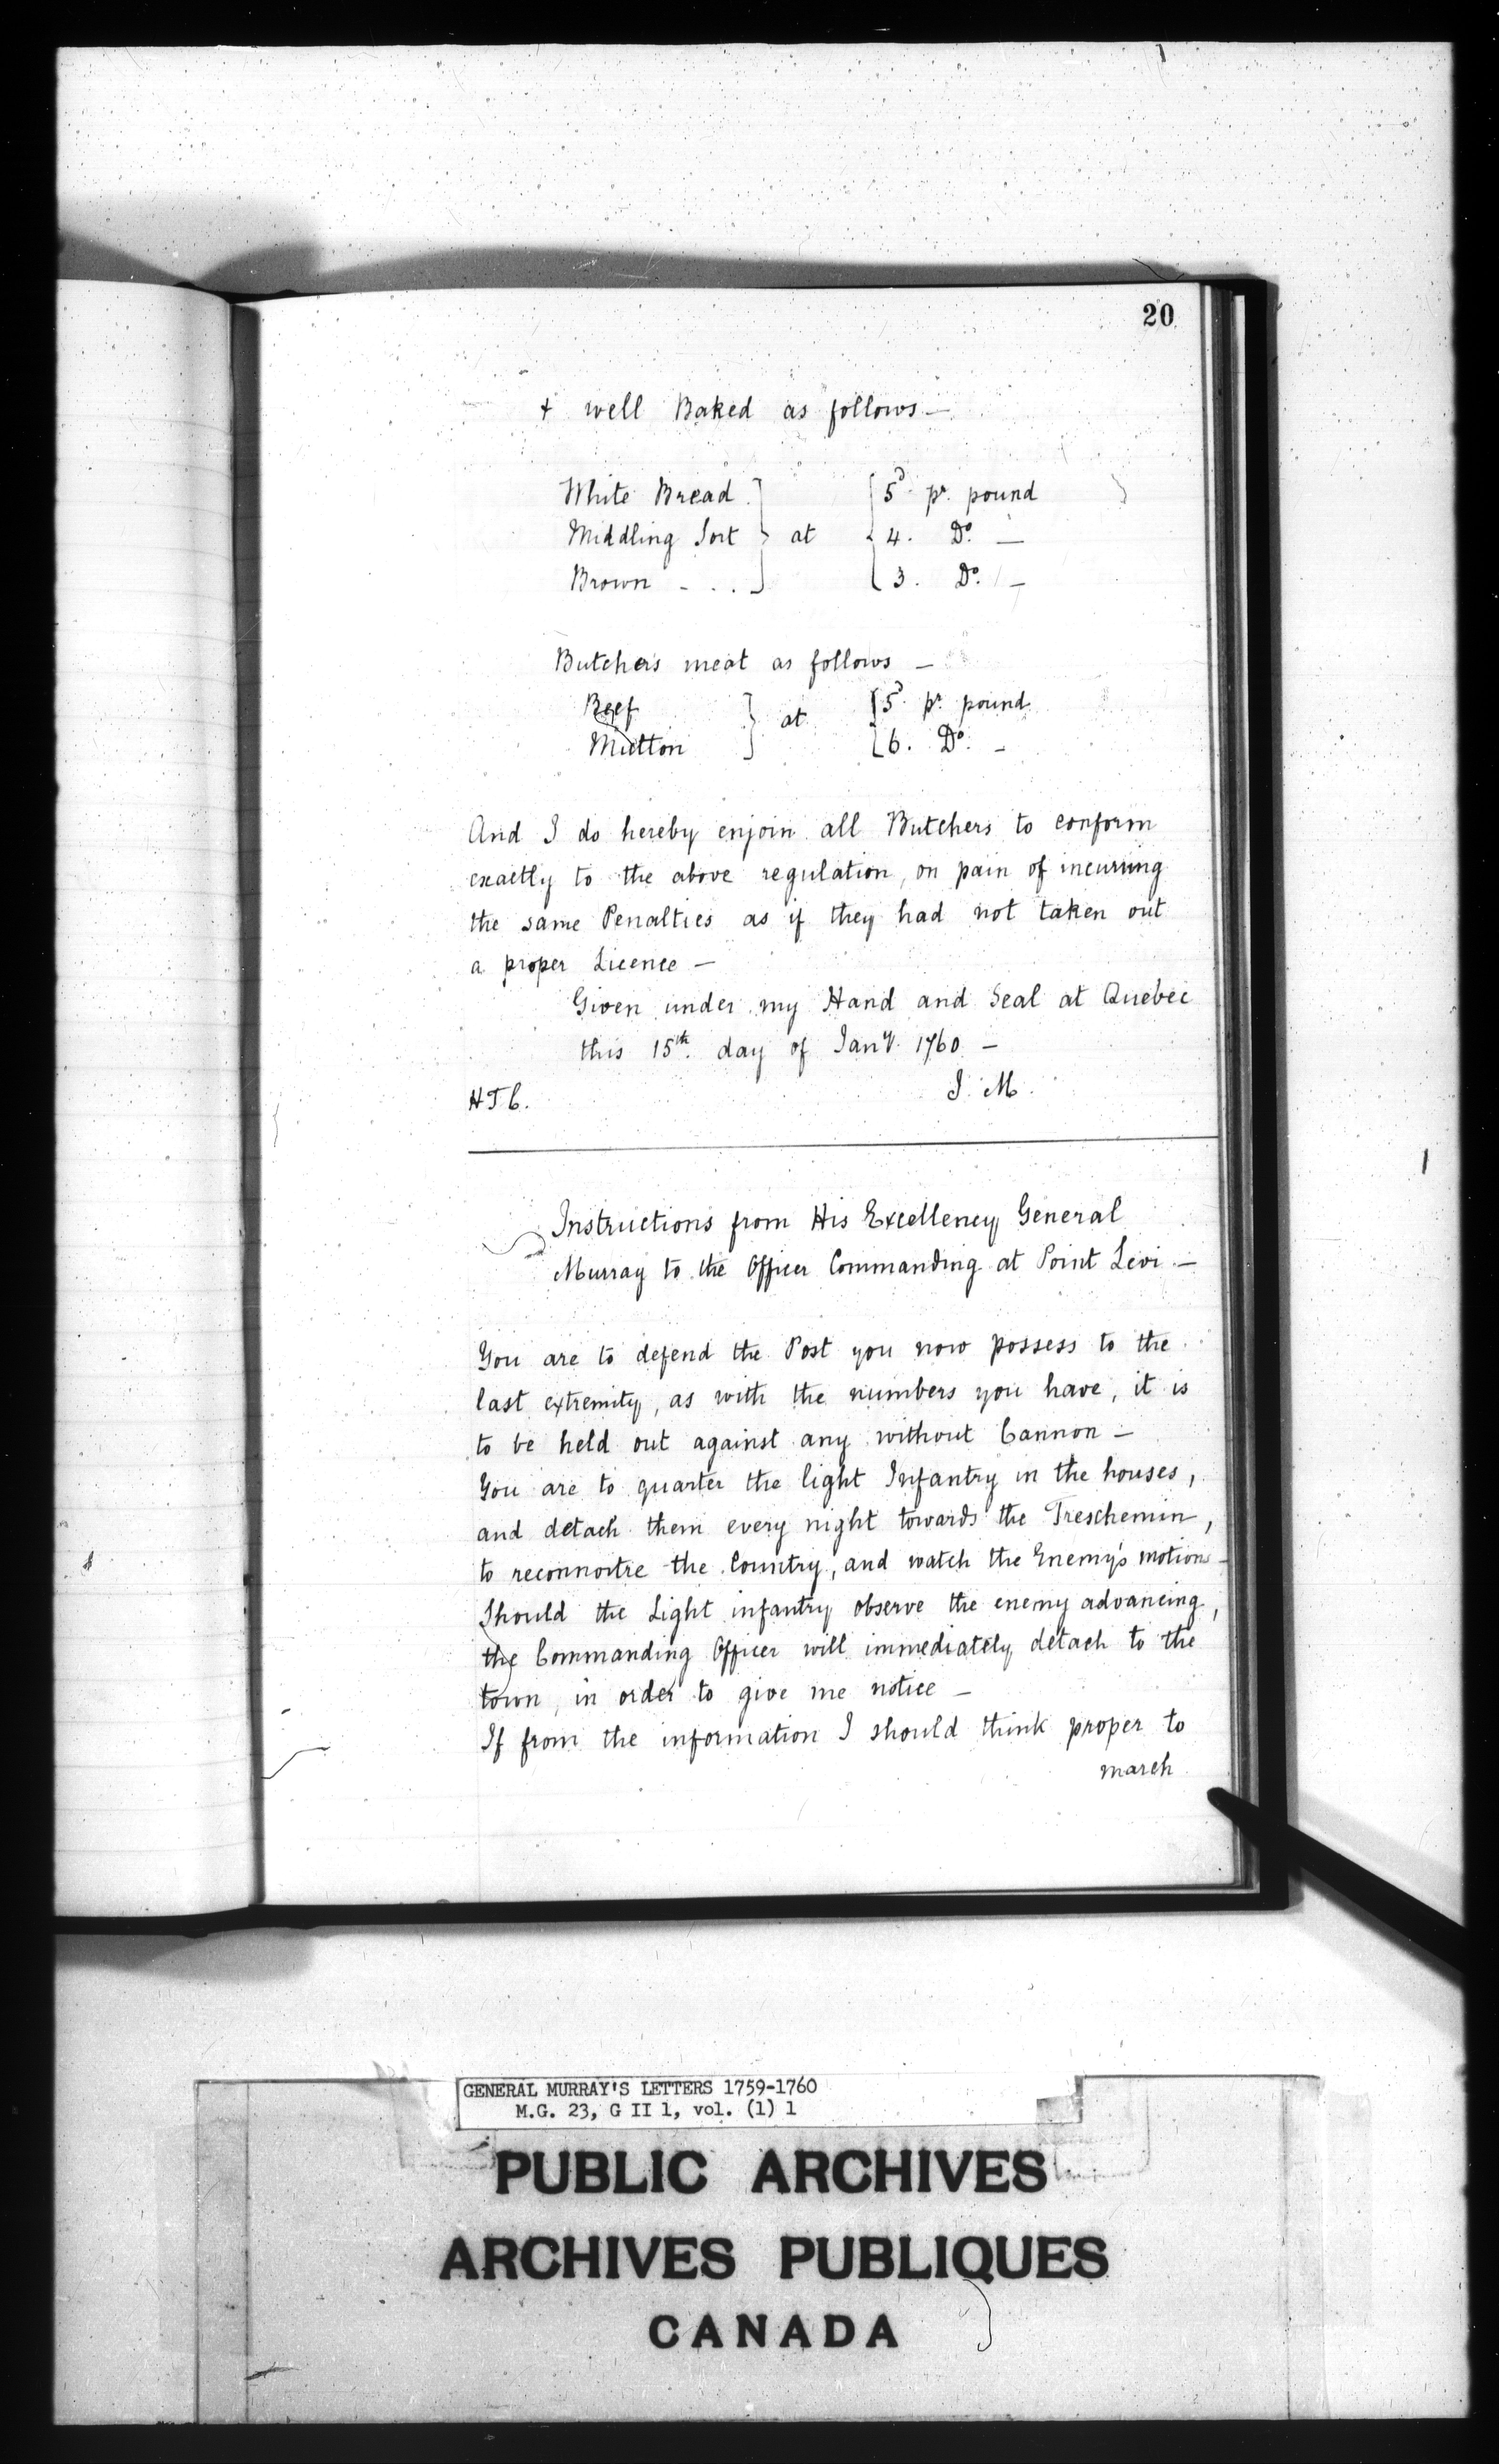 20
+ well Baked as follows —
White Bread } at { 5d pr. pound
Middling Sort } at { 4. Do. —
Brown - . . } { 3. Do. —
Butchers meat as follows —
Beef } at { 5d pr. pound
Mutton } { 6. Do. -
And I do hereby enjoin all Butchers to conform
exactly to the above regulation, on pain of incurring
the same Penalties as if they had not taken out
a proper Licence —
Given under my Hand and Seal at Quebec
this 15th. day of Jany. 1760 —
J. M.
H T C.
Instructions from His Excellency General
Murray to the Officer Commanding at Point Levi. —
You are to defend the Post you now possess to the
last extremity, as with the numbers you have, it is
to be held out against any without Cannon —
You are to quarter the light Infantry in the houses,
and detach them every night towards the Treschemin,
to reconnoitre the Country, and watch the Enemy's motions —
Should the Light infantry observe the enemy advancing,
the Commanding Officer will immediately detach to the
town, in order to give me notice —
If from the information I should think proper to
march
GENERAL MURRAY'S LETTERS 1759-1760
M.G. 23, G II 1, vol. (1) 1
PUBLIC ARCHIVES
ARCHIVES PUBLIQUES
CANADA